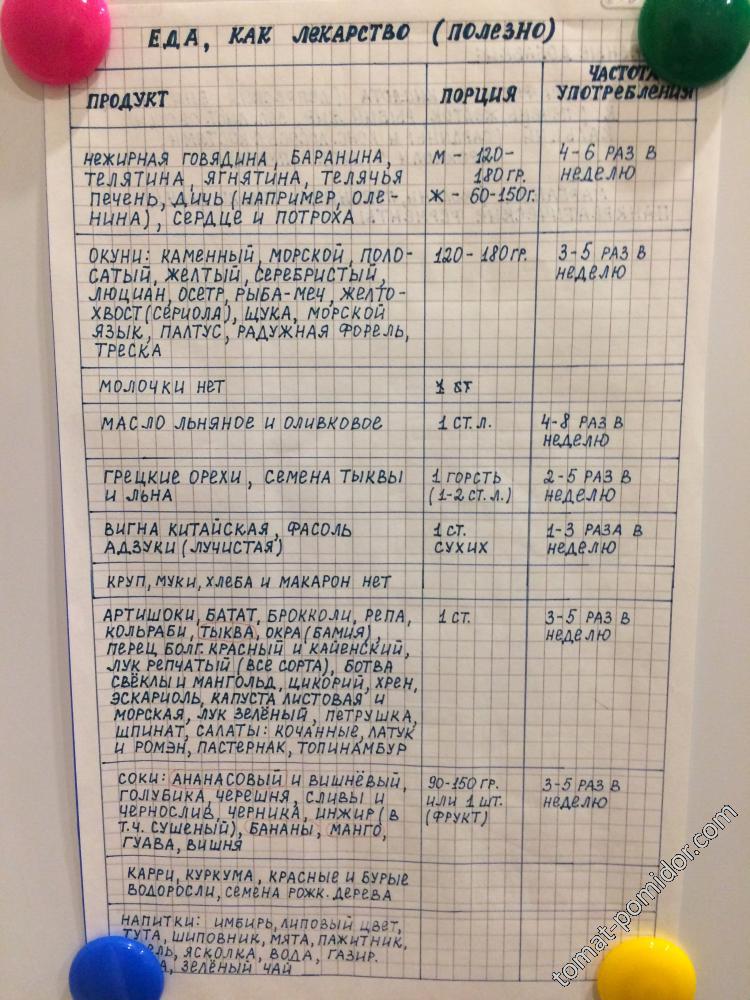 ЕДА, КАК ЛЕКАРСТВО (ПОЛЕЗНО)
ПРОДУКТ
ПОРЦИЯ
ЧАСТОТА
УПОТРЕБЛЕНИЯ
НЕЖИРНАЯ ГОВЯДИНА, БАРАНИНА,
ТЕЛЯТИНА, ЯГНЯТИНА, ТЕЛЯЧЬЯ
ПЕЧЕНЬ, ДИЧЬ (НАПРИМЕР, ОЛЕ-
НИНА), СЕРДЦЕ И ПОТРОХА
М - 120-
180 ГР.
Ж - 60-150Г.
4-6 РАЗ В
НЕДЕЛЮ
ОКУНИ: КАМЕННЫЙ, МОРСКОЙ, ПОЛО-
САТЫЙ, ЖЕЛТЫЙ, СЕРЕБРИСТЫЙ,
ЛЮЦИАН, ОСЕТР, РЫБА-МЕЧ, ЖЕЛТО-
ХВОСТ (СЕРИОЛА), ЩУКА, МОРСКОЙ
ЯЗЫК, ПАЛТУС, РАДУЖНАЯ ФОРЕЛЬ,
ТРЕСКА
120-180ГР.
3-5 РАЗ В
НЕДЕЛЮ
МОЛОЧКИ НЕТ
МАСЛО ЛЬНЯНОЕ И ОЛИВКОВОЕ
1 СТ.Л.
4-8 РАЗ В
НЕДЕЛЮ
ГРЕЦКИЕ ОРЕХИ, СЕМЕНА ТЫКВЫ
И ЛЬНА
1 ГОРСТЬ
(1-2 СТ.Л.)
2-5 РАЗ В
НЕДЕЛЮ
ВИГНА КИТАЙСКАЯ, ФАСОЛЬ
АДЗУКИ (ЛУЧИСТАЯ)
1 СТ.
СУХИХ
1-3 РАЗА В
НЕДЕЛЮ
КРУП, МУКИ, ХЛЕБА И МАКАРОН НЕТ
АРТИШОКИ, БАТАТ, БРОККОЛИ, РЕПА,
КОЛЬРАБИ, ТЫКВА, ОКРА (БАМИЯ),
ПЕРЕЦ БОЛГ. КРАСНЫЙ И КАЙЕНСКИЙ,
ЛУК РЕПЧАТЫЙ (ВСЕ СОРТА), БОТВА
СВЁКЛЫ И МАНГОЛЬД, ЦИКОРИЙ, ХРЕН,
ЭСКАРИОЛЬ, КАПУСТА ЛИСТОВАЯ И
МОРСКАЯ, ЛУК ЗЕЛЁНЫЙ, ПЕТРУШКА,
ШПИНАТ, САЛАТЫ: КОЧАННЫЕ, ЛАТУК
И РОМЭН, ПАСТЕРНАК, ТОПИНАМБУР
1 СТ.
3-5 РАЗ В
НЕДЕЛЮ
СОКИ: АНАНАСОВЫЙ И ВИШНЁВЫЙ,
ГОЛУБИКА, ЧЕРЕШНЯ, СЛИВЫ И
ЧЕРНОСЛИВ, ЧЕРНИКА, ИНЖИР (В
Т.Ч. СУШЕНЫЙ), БАНАНЫ, МАНГО,
ГУАВА, ВИШНЯ
90-150 ГР.
ИЛИ 1 ШТ.
(ФРУКТ)
3-5 РАЗ В
НЕДЕЛЮ
КАРРИ, КУРКУМА, КРАСНЫЕ И БУРЫЕ
ВОДОРОСЛИ, СЕМЕНА РОЖК. ДЕРЕВА
НАПИТКИ: ИМБИРЬ, ЛИПОВЫЙ ЦВЕТ,
ТУТА, ШИПОВНИК, МЯТА, ПАЖИТНИК,
ЯСКОЛКА, ВОДА, ГАЗИР.
ЗЕЛЁНЫЙ ЧАЙ
tomat-pomidor.com